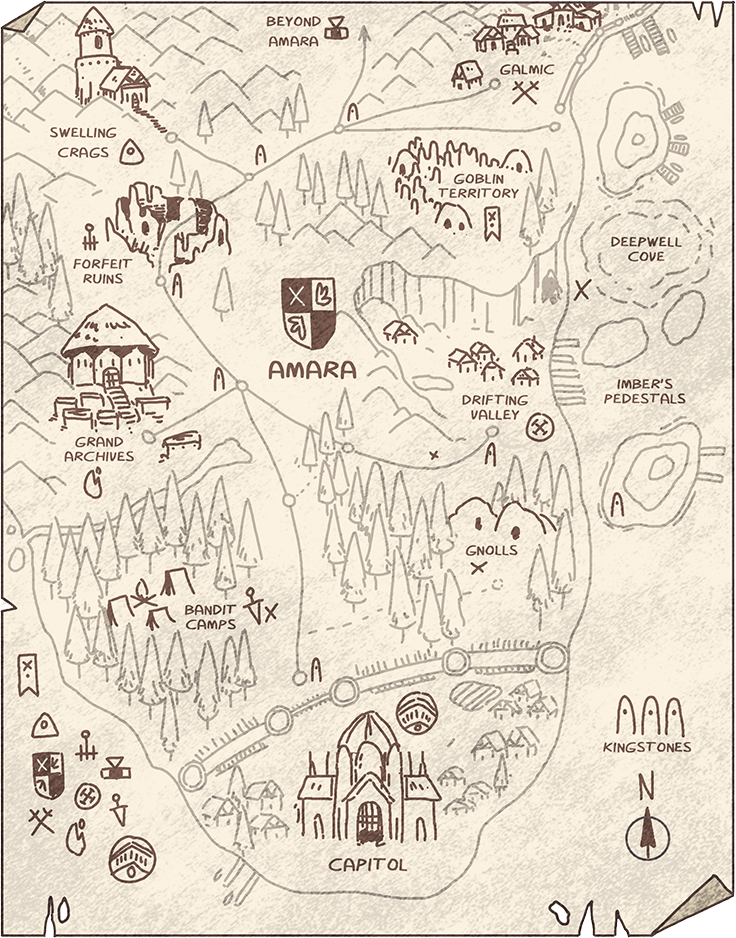 BEYOND
AMARA
GALMIC
SWELLING
CRAGS
GOBLIN
TERRITORY
DEEPWELL
COVE
FORFEIT
RUINS
AMARA
IMBER'S
PEDESTALS
DRIFTING
VALLEY
GRAND
ARCHIVES
GNOLLS
BANDIT
CAMPS
KINGSTONES
N
CAPITOL